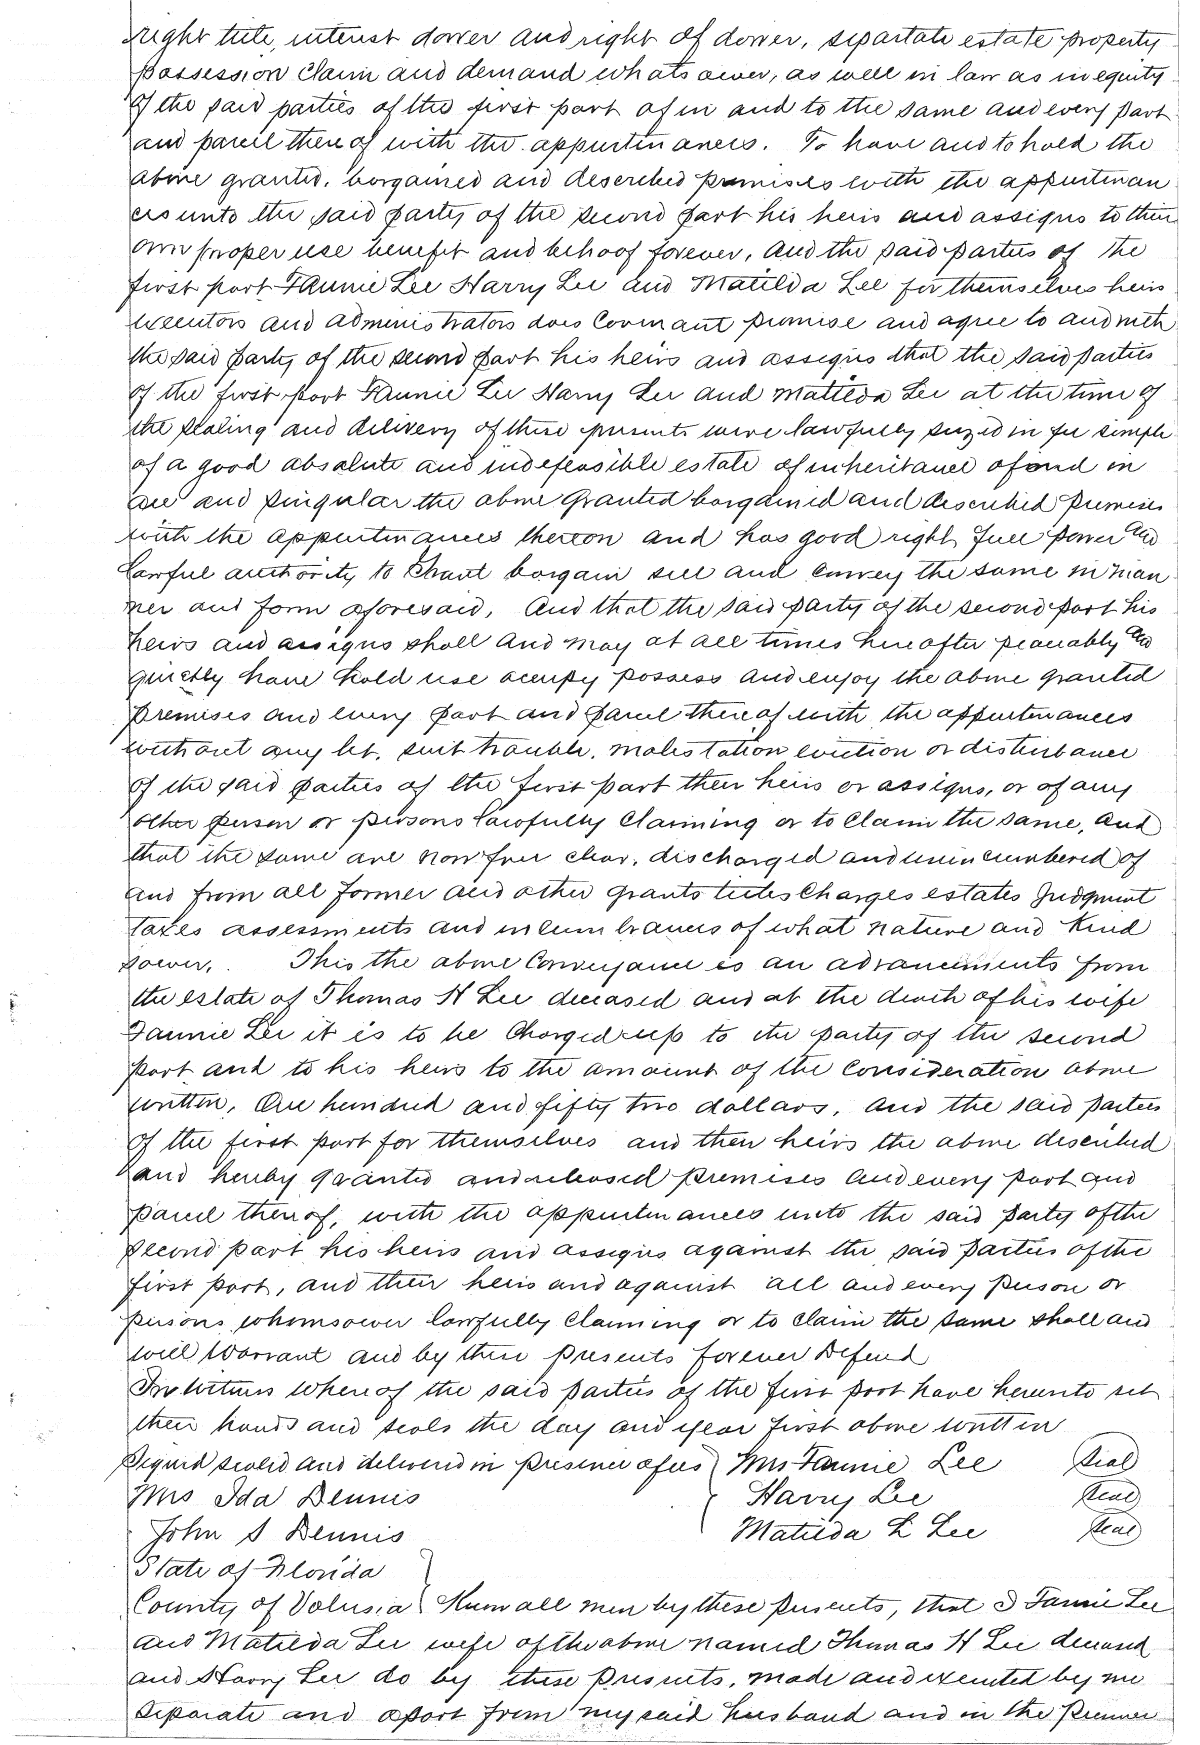 right title, interest dower and right of dower, separtate estate property
possession Claim and demand whatsoever, as well in law as in equity
of the said parties of the first part of in and to the same and every part
and parcel there of with the appurtinances. To have and to hold the
above granted, bargained and described premises with the appurtinan
ces unto the said party of the second part his heirs and assigns to their
own proper use benefit and behoof forever, And the said parties of the
first part Fannie Lee Harry Lee and Matilda Lee for themselves heirs
executors and administrators does Covenant promise and agree to and with
the said party of the second part his heirs and assigns that the said parties
of the first part Fannie Lee Harry Lee and Matilda Lee at the time of
the sealing and delivery of these presents were lawfully seized in fee simple
of a good absolute and indefensible estate of inheritance of and in
all and singular the above granted bargained and described premises
with the appurtinances thereon and has good right Full power and
lawful authority to Grant bargain sell and convey the same in man
ner and form aforesaid. And that the said party of the second part his
heirs and assigns shall and may at all times here after peacably and
quietly have hold use occupy possess and enjoy the above granted
premises and every part and parcel there of with the appurtinances
without any let, suit trouble, molestation eviction or disturbance
of the said parties of the first part their heirs or assigns, or of any
other person or persons lawfully Claiming or to Claim the same, and
that the same are now free clear, discharged and unincumbered of
and from all former and other grants titles Charges estates Judgment
taxes assessments and incumbrances of what nature and Kind
soever. This the above Conveyance is an advancements from
the estate of Thomas H Lee deceased and at the death of his wife
Fannie Lee it is to be Charged up to the party of the second
part and to his heirs to the amount of the Consideration above
written, One hundred and fifty two dollars, and the said parties
of the first part for themselves and their heirs the above described
and hereby granted and released premises and every part and
parcel thereof, with the appurtinances unto the said party of the
second part his heirs and assigns against the said parties of the
first part, and their heirs and against all and every person or
persons whomsoever lawfully Claiming or to Claim the same shall and
will Warrant and by these presents forever Defend
In Witness where of the said parties of the first part have hereunto set
their hands and seals the day and year first above written
Signed sealed and delivered in presence of us Mrs Fannie Lee Seal
Mrs Ida Dennis Harry Lee Seal
John S Dennis Matilda L Lee Seal
State of Florida
County of Volusia Know all men by these presents, that I Fannie Lee
and Matilda Lee wife of the above named Thomas H Lee deceased
and Harry Lee do by these presents, made and executed by me
separate and apart from my said husband and in the